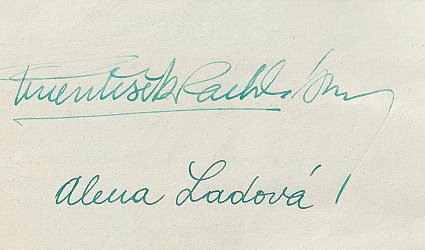 František Rachlík
Alena Ladová !